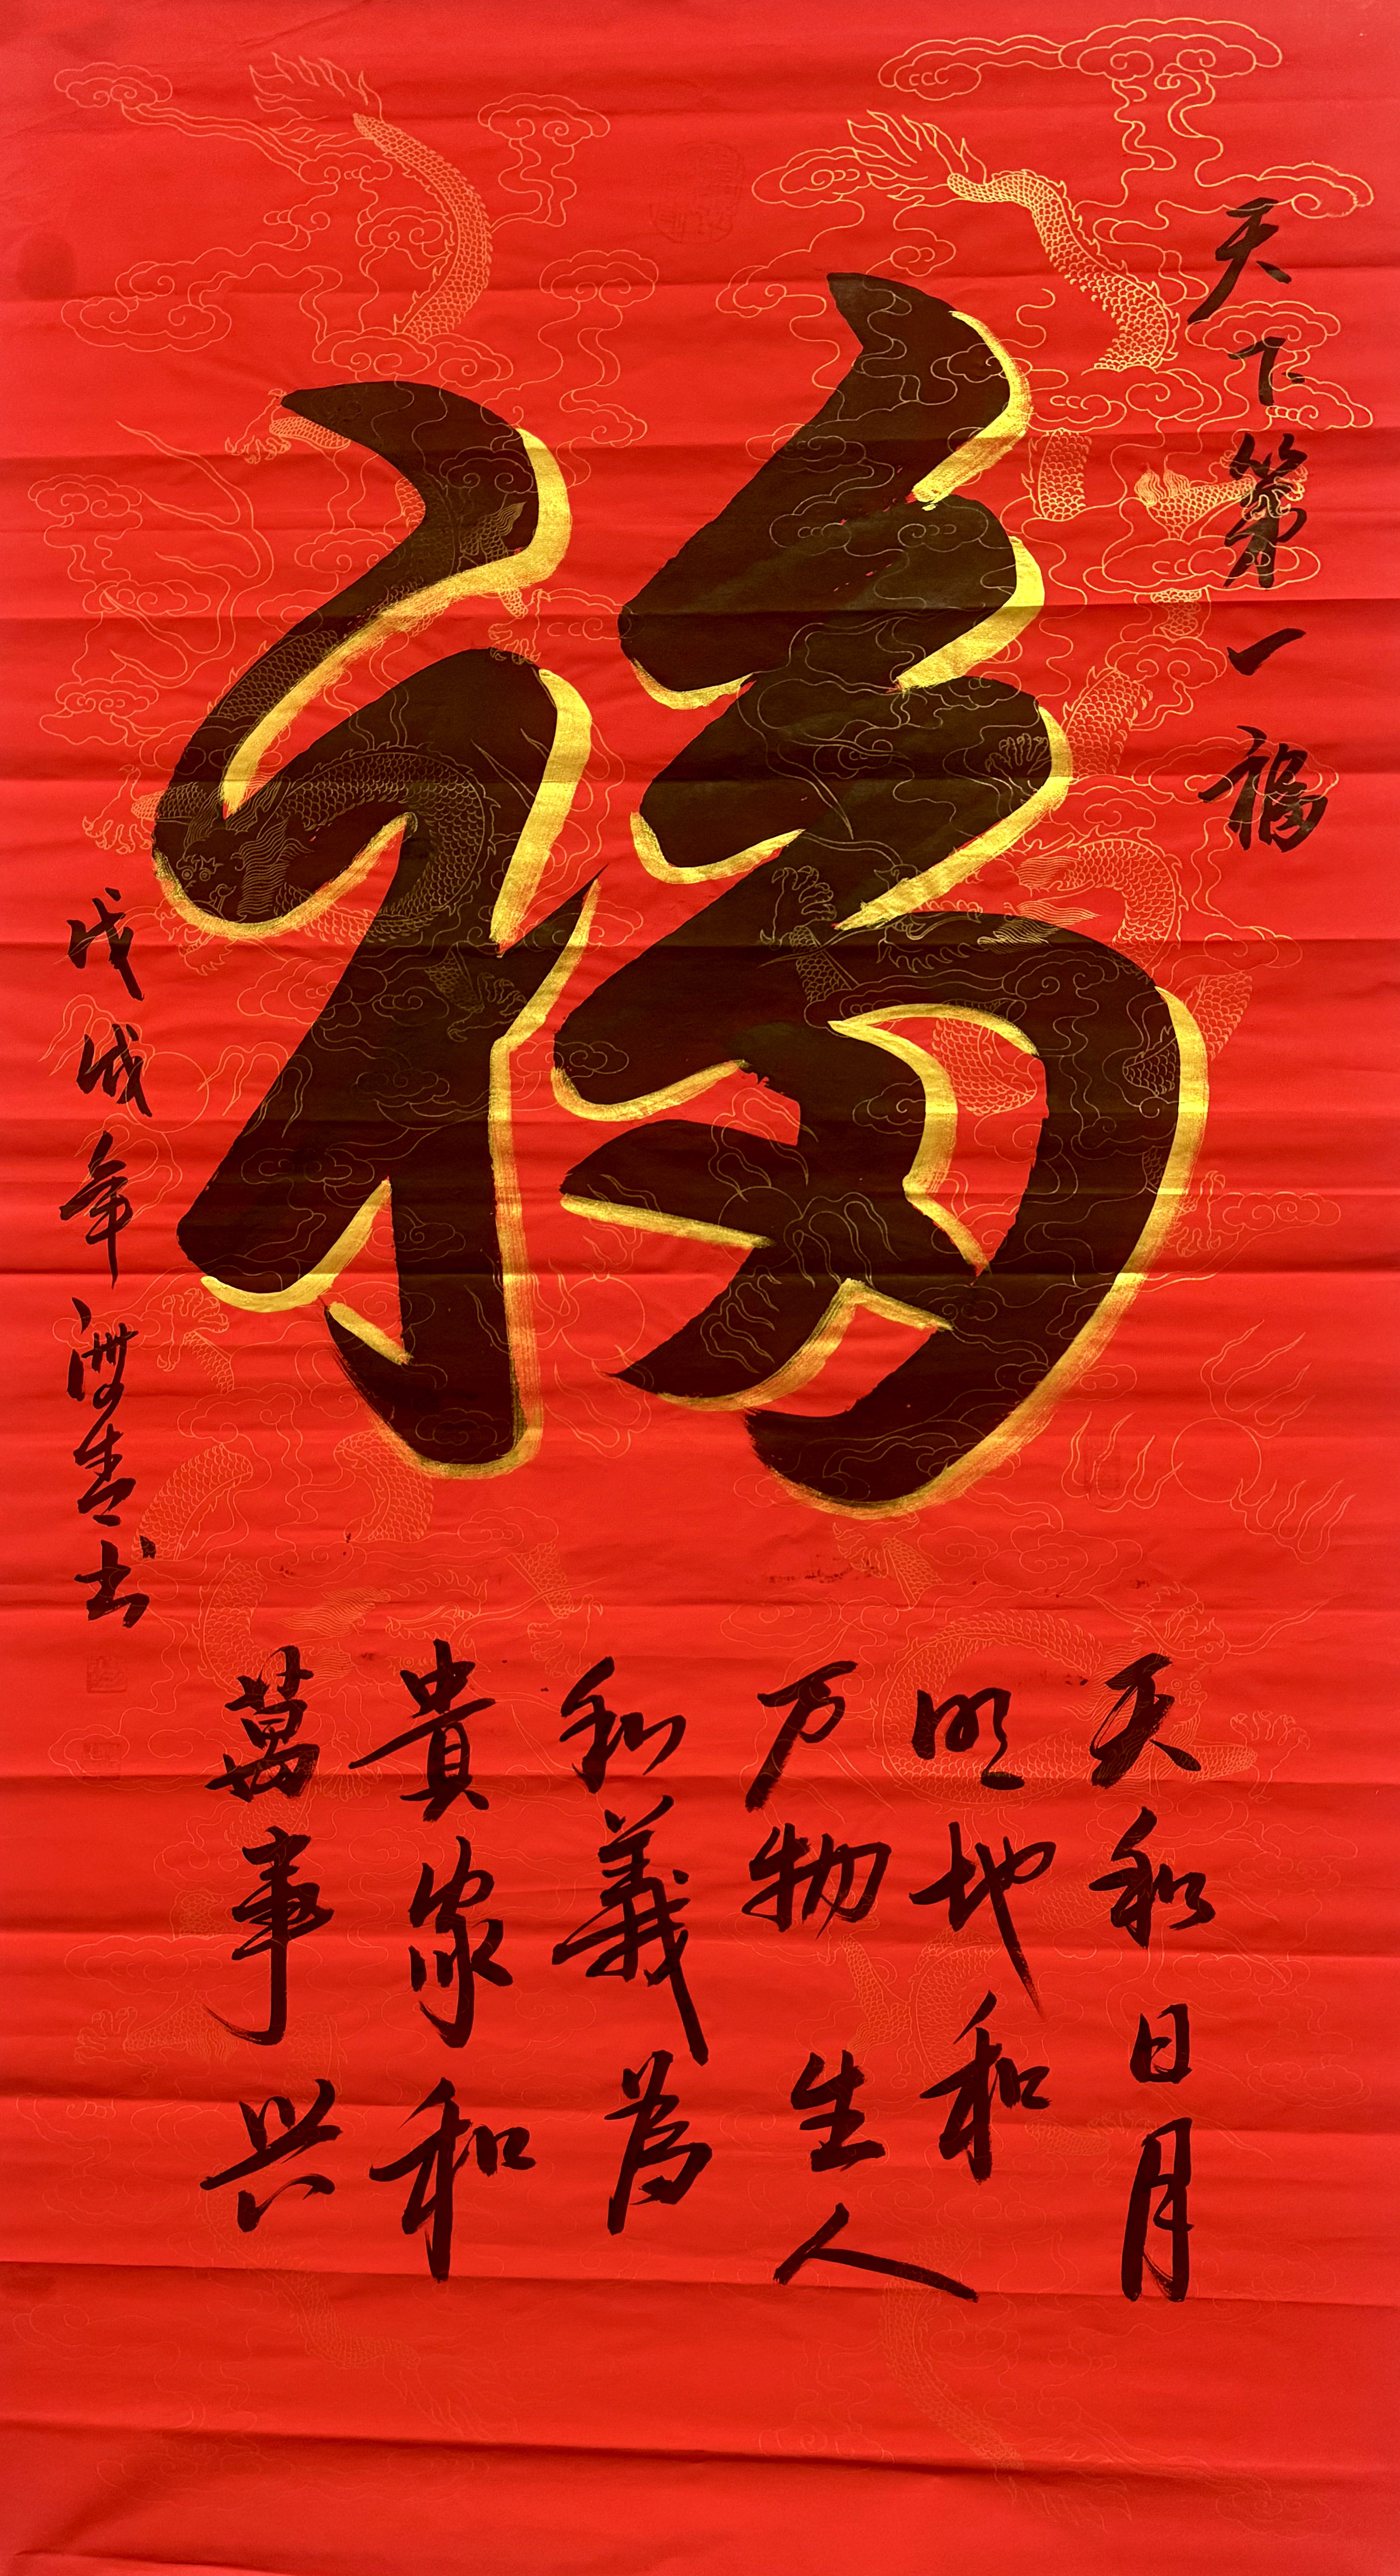 天下第一福
福
天和日月
明地和
万物生人
和義為
貴家和
萬事兴
戊戌年
书